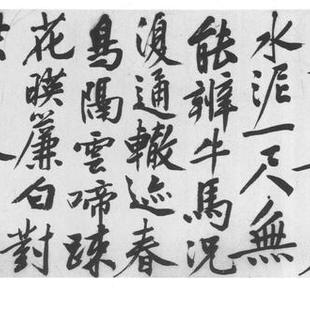 水泥一尺無
能辨牛馬況
復通轍迹春
鳥隔雲啼踈
花暎簾白對